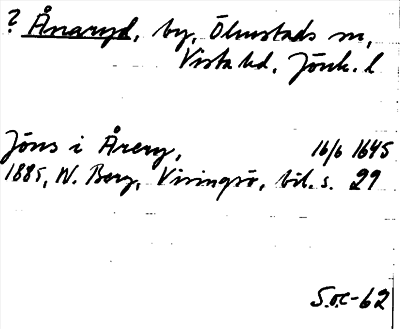 ? Ånaryd, by, Ölmstads sn,
Vista hd, Jönk. l
Jöns i Årery, 16/6 1645
1885, W. Berg, Visingsö, bil. s. 29
S.O.C-62